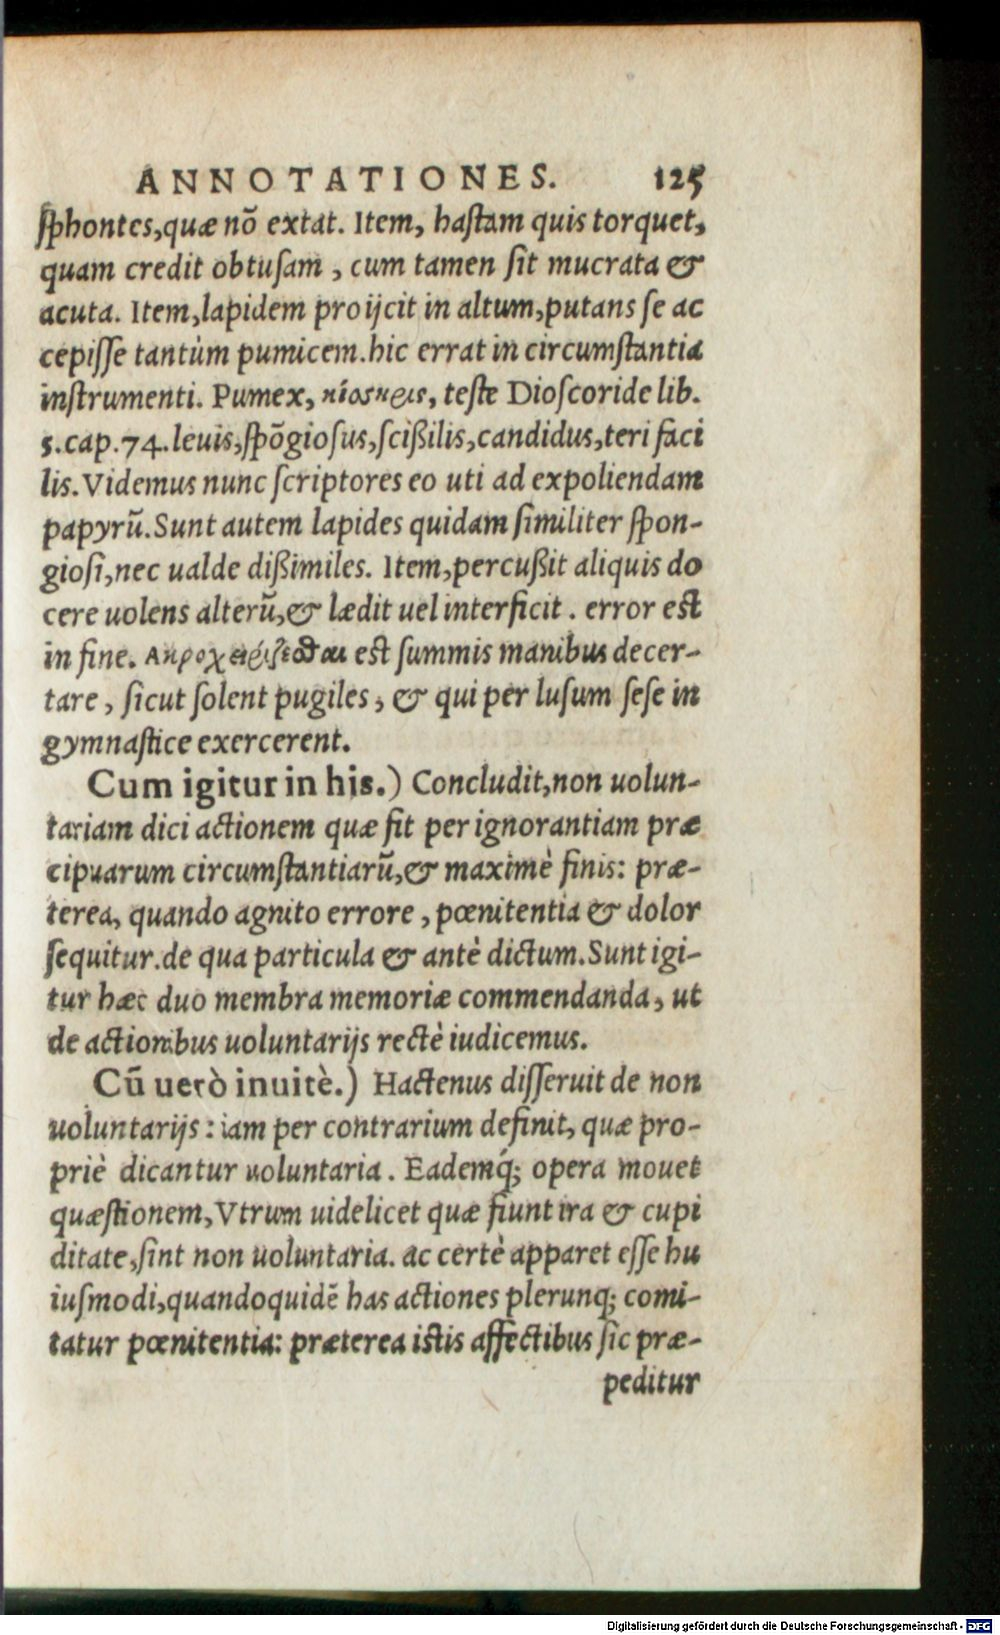 ANNOTATIONES. 125
sphontes,quæ nō extat. Item, hastam quis torquet,
quam credit obtusam , cum tamen sit mucrata &
acuta. Item,lapidem proijcit in altum,putans se ac
cepisse tantùm pumicem.hic errat in circumstantia
instrumenti. Pumex, κίσηεις, teste Dioscoride lib.
5.cap.74.leuis,spōgiosus,scißilis,candidus,teri faci
lis.Videmus nunc scriptores eo uti ad expoliendam
papyrū.Sunt autem lapides quidam similiter spon-
giosi,nec ualde dißimiles. Item,percußit aliquis do
cere uolens alterū,& lædit uel interficit . error est
in fine. Ακροχειρίζεσθαι est summis manibus decer-
tare , sicut solent pugiles , & qui per lusum sese in
gymnastice exercerent.
Cum igitur in his.) Concludit,non uolun-
tariam dici actionem quæ fit per ignorantiam præ
cipuarum circumstantiarū,& maximè finis: præ-
terea, quando agnito errore , pœnitentia & dolor
sequitur.de qua particula & antè dictum.Sunt igi-
tur hæc duo membra memoriæ commendanda, ut
de actionibus uoluntarijs rectè iudicemus.
Cū uerò inuitè.) Hactenus disseruit de non
uoluntarijs : iam per contrarium definit, quæ pro-
priè dicantur uoluntaria . Eademq́; opera mouet
quæstionem,Vtrum uidelicet quæ fiunt ira & cupi
ditate,sint non uoluntaria. ac certè apparet esse hu
iusmodi,quandoquidē has actiones plerunq; comi-
tatur pœnitentia: præterea istis affectibus sic præ-
peditur
Digitalisierung gefördert durch die Deutsche Forschungsgemeinschaft - DFG